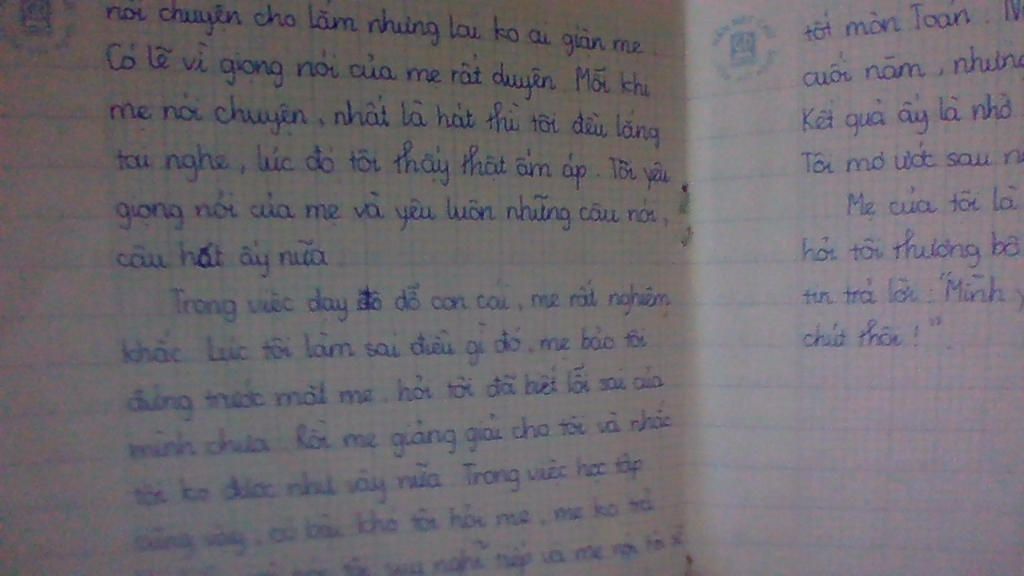 nói chuyện cho lắm nhưng lại ko ai giận mẹ.
Có lẽ vì giọng nói của mẹ rất duyên. Mỗi khi
mẹ nói chuyện, nhất là hát thì tôi đều lắng
tai nghe, lúc đó tôi thấy thật ấm áp. Tôi yêu
giọng nói của mẹ và yêu luôn những câu nói,
câu hát ấy nữa.
Trong việc dạy dỗ con cái, mẹ rất nghiêm
khắc. Lúc tôi làm sai điều gì đó, mẹ bảo tôi
đứng trước mặt mẹ, hỏi tôi đã biết lỗi sai của
mình chưa. Rồi mẹ giảng giải cho tôi và nhắc
tôi ko được như vậy nữa. Trong việc học tập
cũng vậy, có bài khó tôi hỏi mẹ, mẹ ko trả
nghĩ tiếp và mẹ nói
tốt môn Toán.
cuối năm, nhưng
Kết quả ấy là nhờ
Tôi mơ ước sau
Mẹ của tôi là
hỏi tôi thương bố
tin trả lời: "Mình
chút thôi!"